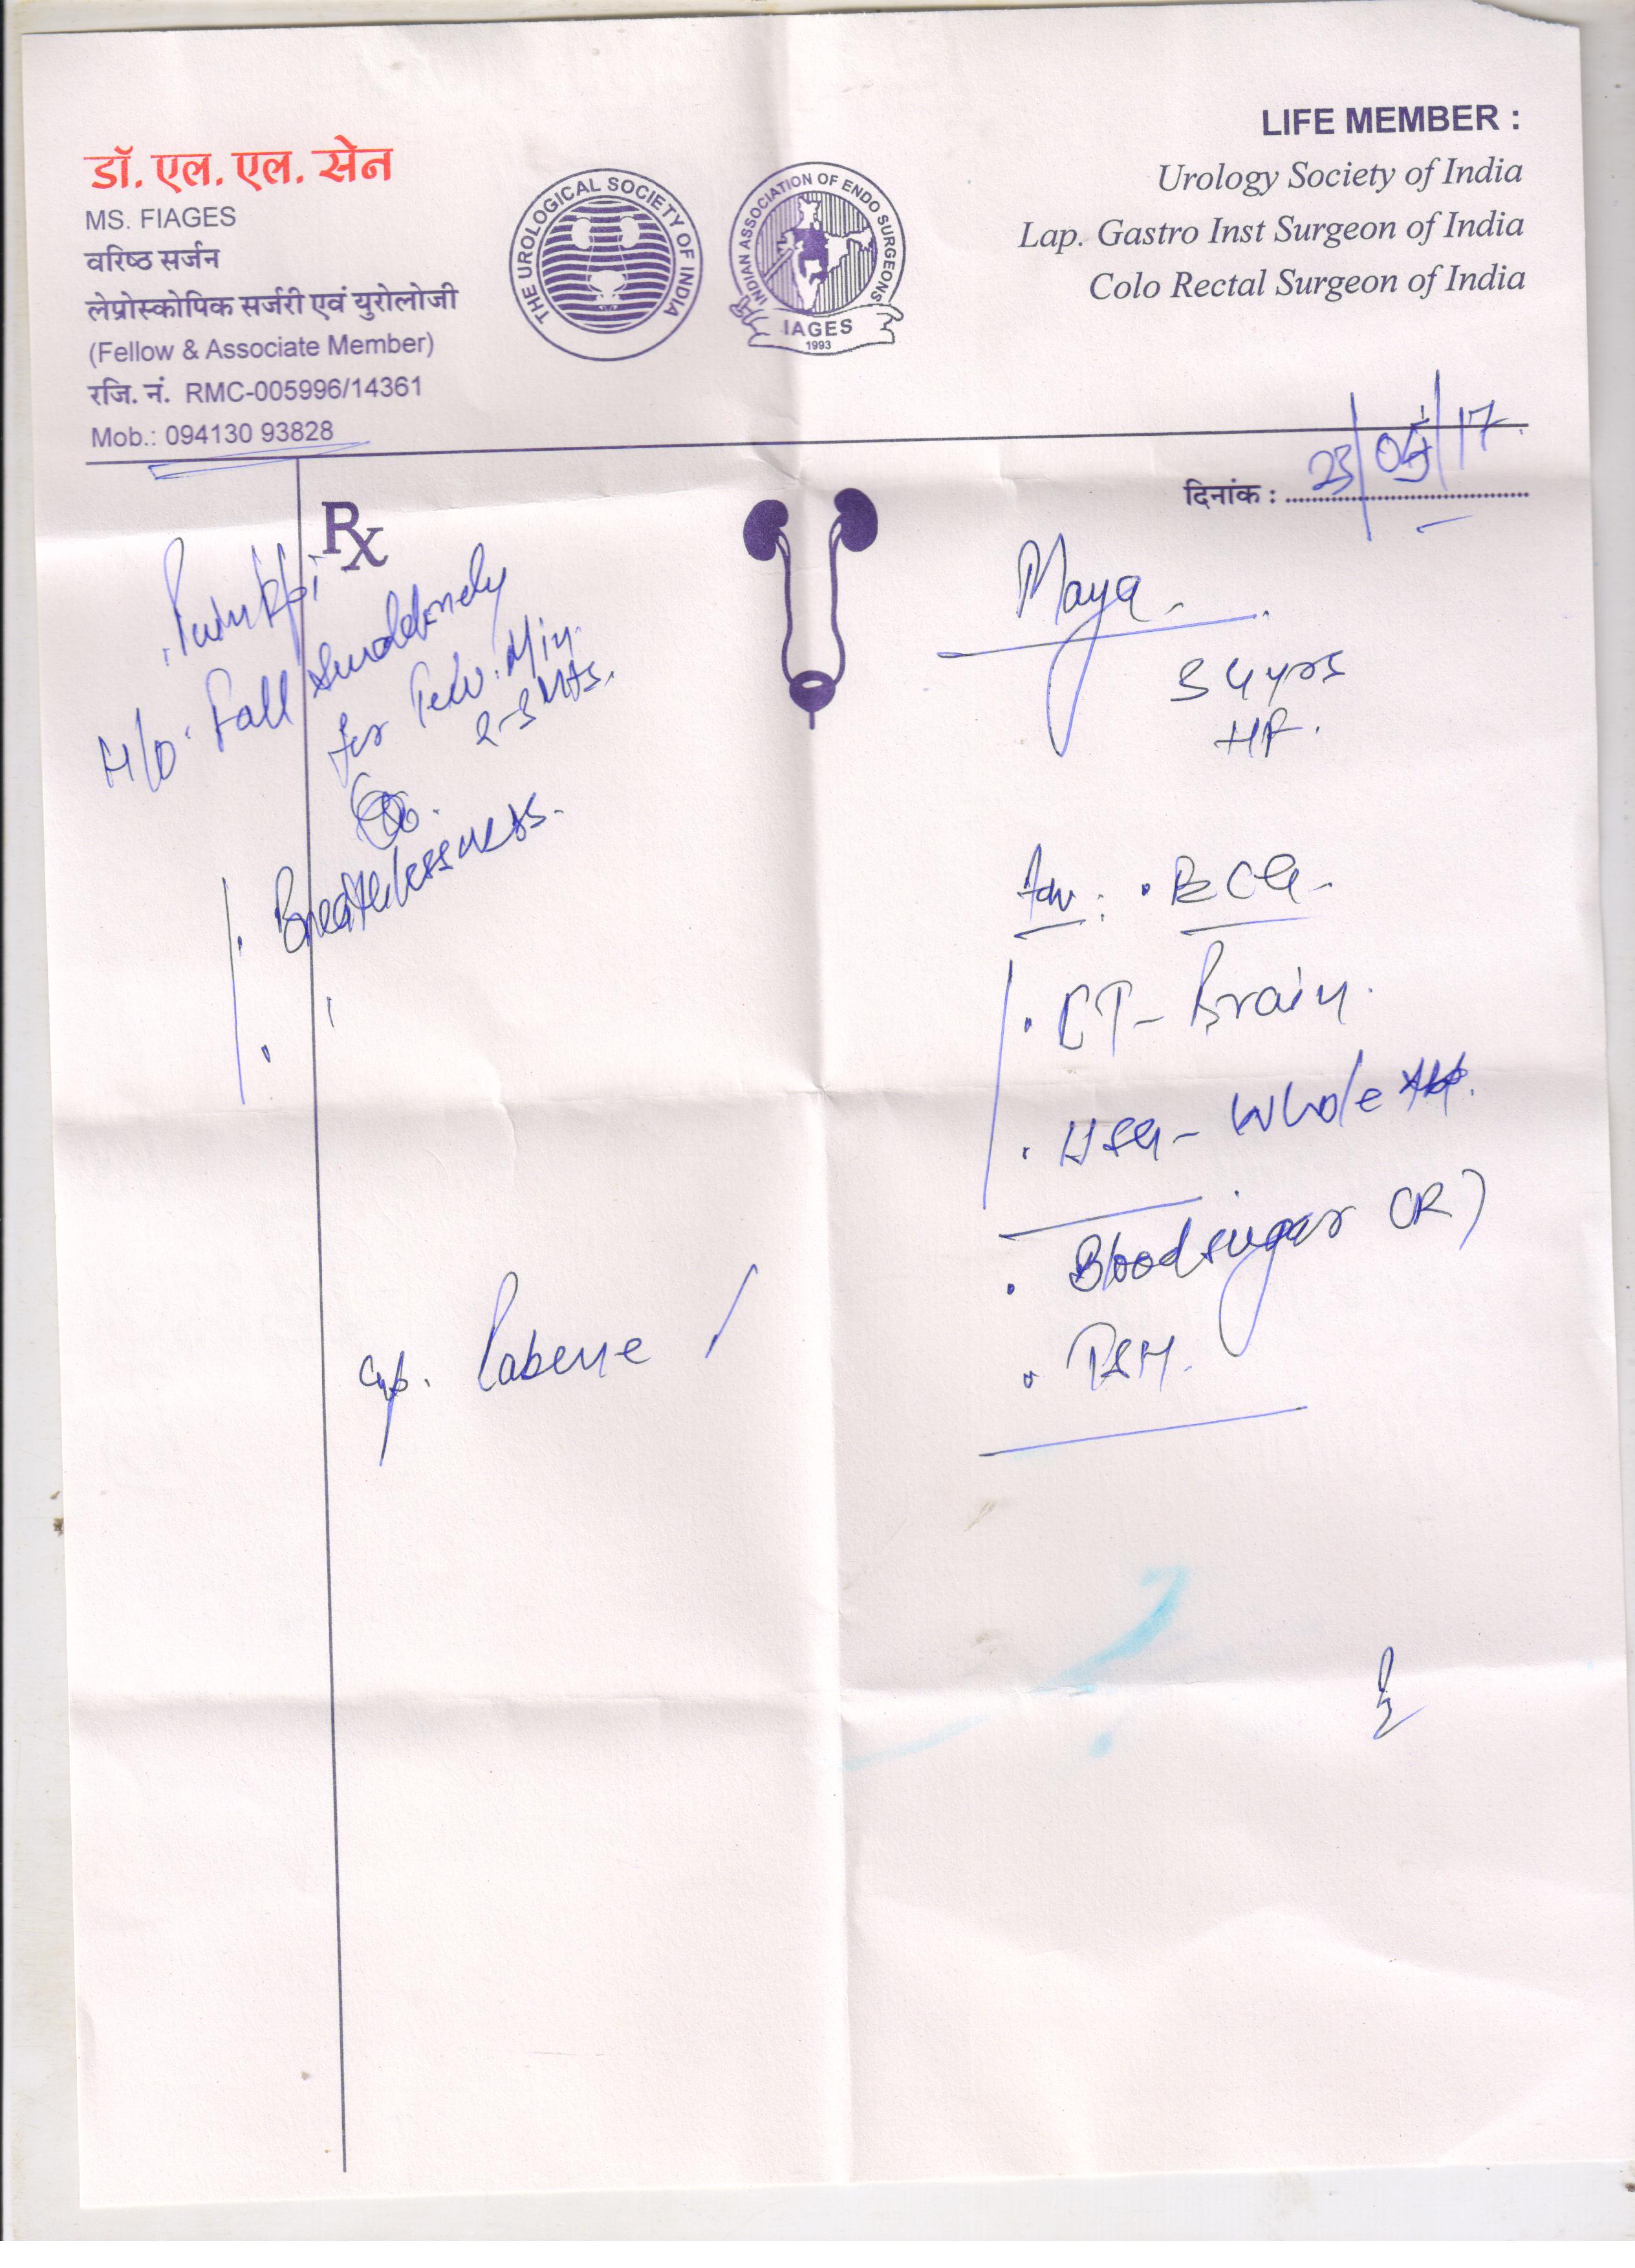 डॉ. एल. एल. सेन
MS. FIAGES
वरिष्ठ सर्जन
लेप्रोस्कोपिक सर्जरी एवं युरोलोजी
(Fellow & Associate Member)
रजि. नं. RMC-005996/14361
Mob.: 094130 93828
THE UROLOGICAL SOCIETY OF INDIA
INDIAN ASSOCIATION OF ENDO SURGEONS
IAGES
1993
LIFE MEMBER :
Urology Society of India
Lap. Gastro Inst Surgeon of India
Colo Rectal Surgeon of India
दिनांक : 23/05/17
Rx
H/O. Fall
for
2-3 Mts.
Breathlessness.
Maya
34 yrs
HF.
Adv: . ECG
. CT- Brain.
. USG - Whole
. Blood sugar (R)
. TSH.
Cap.